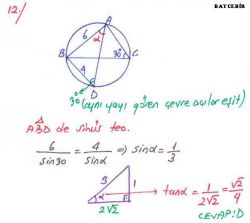 BATCEBİR
12./
A
6
α
B
30°
C
4
D
30° (aynı yayı gören çevre açılar eşit)
ABD de sinüs teo.
6/sin30 = 4/sinα ⇒ sinα = 1/3
3
1
α
E
2√2
tanα = 1/2√2 = √2/4
CEVAP: D